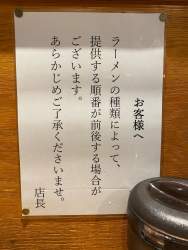 お客様へ
ラーメンの種類によって、
提供する順番が前後する場合が
ございます。
あらかじめご了承くださいませ。
店長